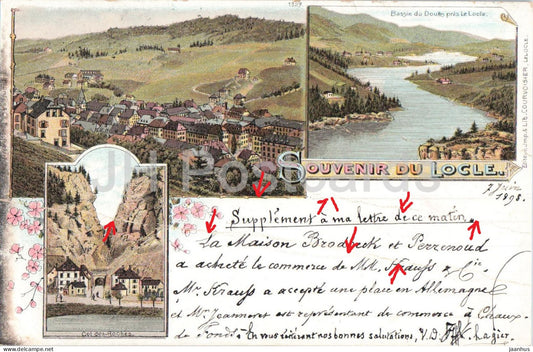 1127
Bassin du Doubs près Le Locle.
SOUVENIR DU LOCLE.
2 Juin
1898.
Supplément à ma lettre de ce matin.
La Maison Brodbeck et Perrenoud
a acheté le commerce de MM. Krauss & Cie.
Mr. Krauss a accepté une place en Allemagne
et Mr. Jeanneret est représentant de commerce à Chaux-
de-Fonds. En vous réitérant nos bonnes salutations,
Col-des-Roches
JH Postcards